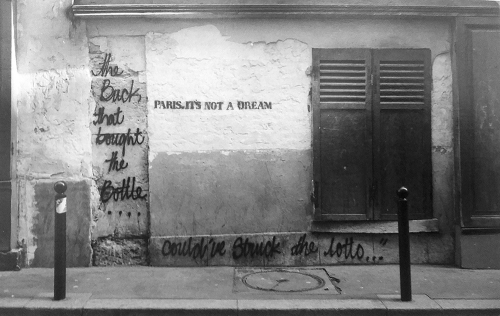 the
Buck
that
bought
the
Bottle
....
PARIS. IT'S NOT A DREAM
could've struck the lotto..."